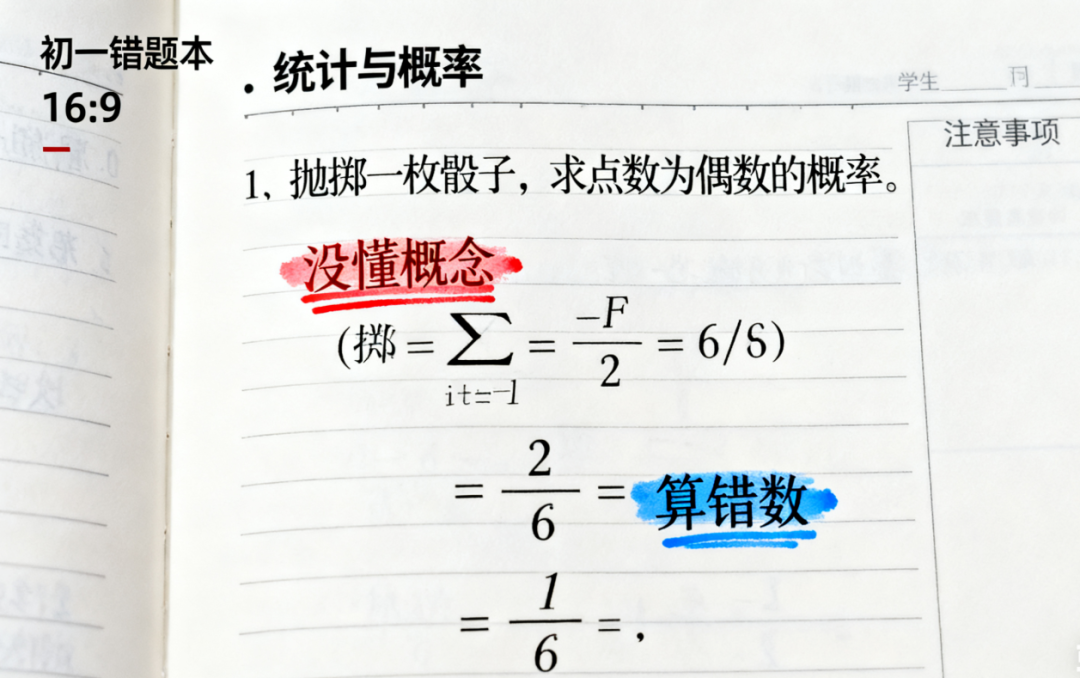 初一错题本
16:9
. 统计与概率
学生
注意事项
1, 抛掷一枚骰子，求点数为偶数的概率。
没懂概念
(掷 = ∑ = -F/2 = 6/8)
it=-1
= 2/6 = 算错数
= 1/6 = ,